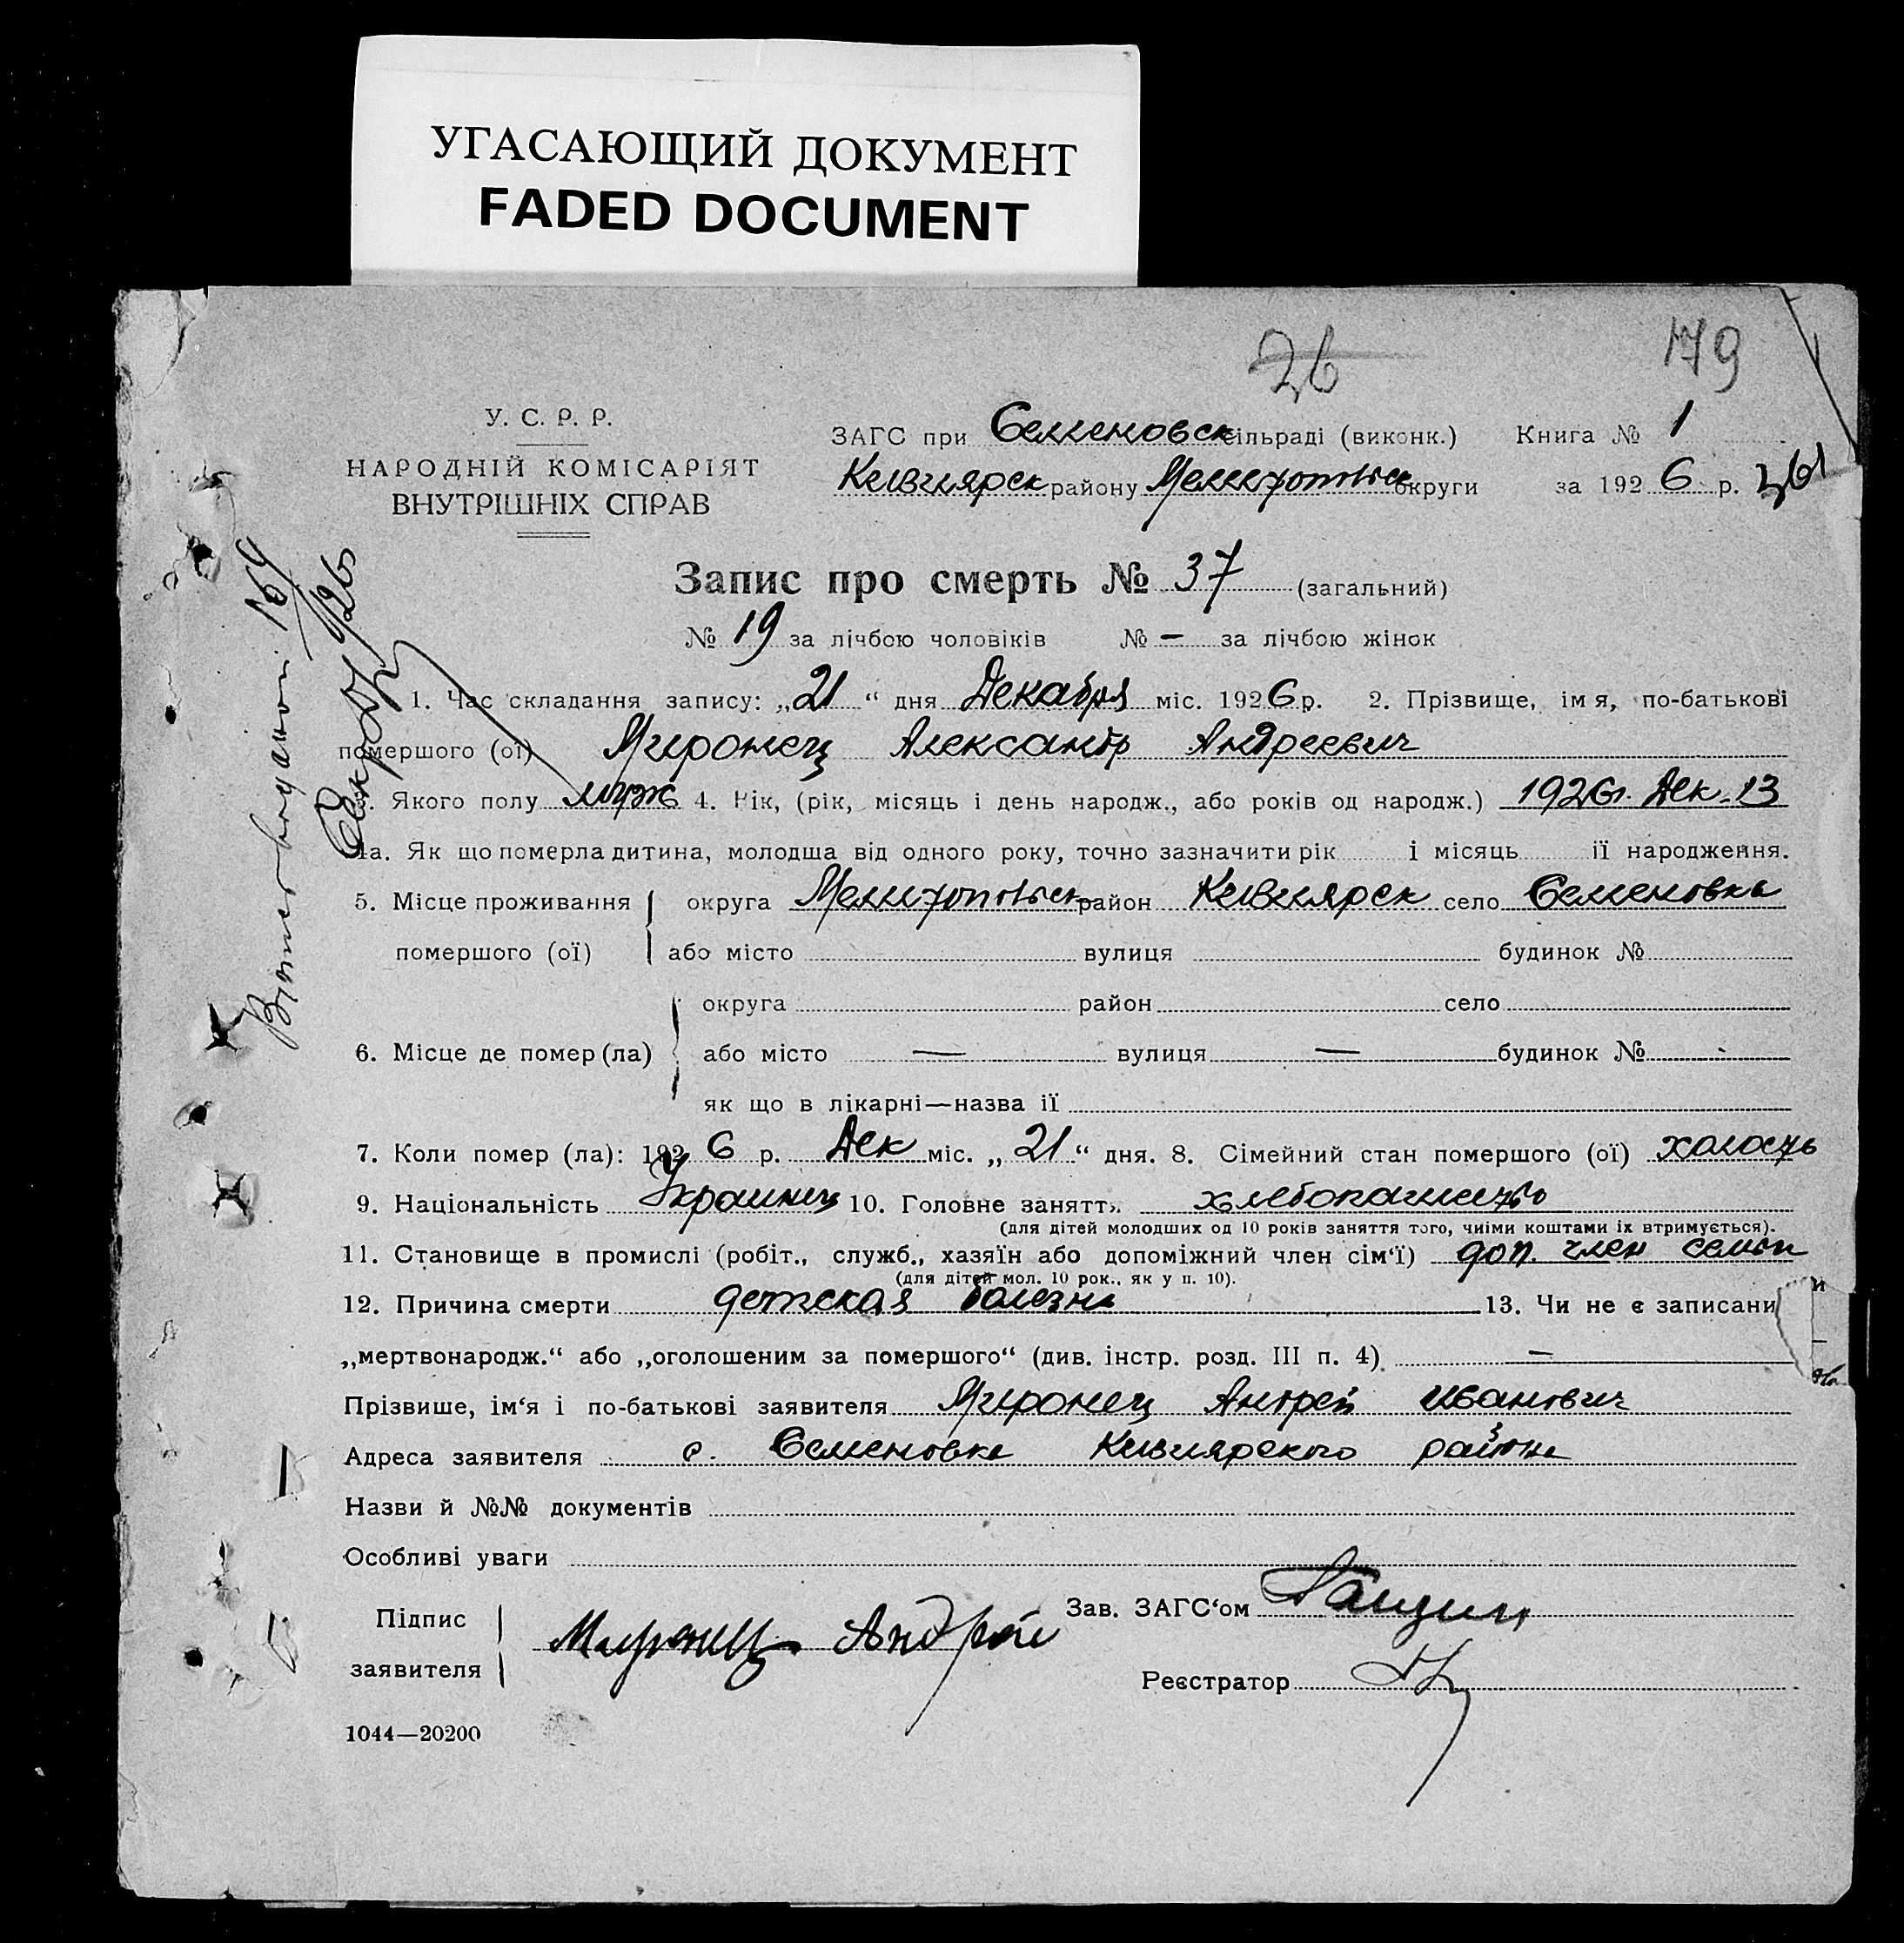 УГАСАЮЩИЙ ДОКУМЕНТ
FADED DOCUMENT
26
179
У. С. Р. Р.
НАРОДНІЙ КОМІСАРІЯТ
ВНУТРІШНІХ СПРАВ
ЗАГС при Семеновск сільраді (виконк.) Книга № 1
Кизиярск району Мелитопольск округи за 1926 р.
Запис про смерть № 37 (загальний)
№ 19 за лічбою чоловіків № — за лічбою жінок
1. Час складання запису: „21“ дня Декабря міс. 1926 р. 2. Прізвище, імя, по-батькові
помершого (ої) Миронец Александр Андреевич
3. Якого полу муж 4. Рік, (рік, місяць і день народж., або років од народж.) 1926 г. Дек. 13
4а. Як що померла дитина, молодша від одного року, точно зазначити рік і місяць її народження.
5. Місце проживання округа Мелитопольск район Кизиярск село Семеновка
помершого (ої) або місто вулиця будинок №
округа район село
6. Місце де помер (ла) або місто — вулиця — будинок № -
як що в лікарні—назва її
7. Коли помер (ла): 1926 р. Дек міс. „21“ дня. 8. Сімейний стан помершого (ої) холость
9. Національність Украинец 10. Головне заняття хлебопашество
(для дітей молодших од 10 років заняття того, чиїми коштами їх втримується).
11. Становище в промислі (робіт., служб., хазяїн або допоміжний член сім'ї) доп. член семьи
(для дітей мол. 10 рок., як у п. 10).
12. Причина смерти детская болезнь 13. Чи не є записани
„мертвонародж.“ або „оголошеним за помершого“ (див. інстр. розд. III п. 4) —
Прізвише, ім'я і по-батькові заявителя Миронец Андрей Иванович
Адреса заявителя с. Семеновка Кизиярского района
Назви й №№ документів
Особливі уваги
Підпис
заявителя Миронец Андрей
Зав. ЗАГС'ом
Реєстратор
1044—20200